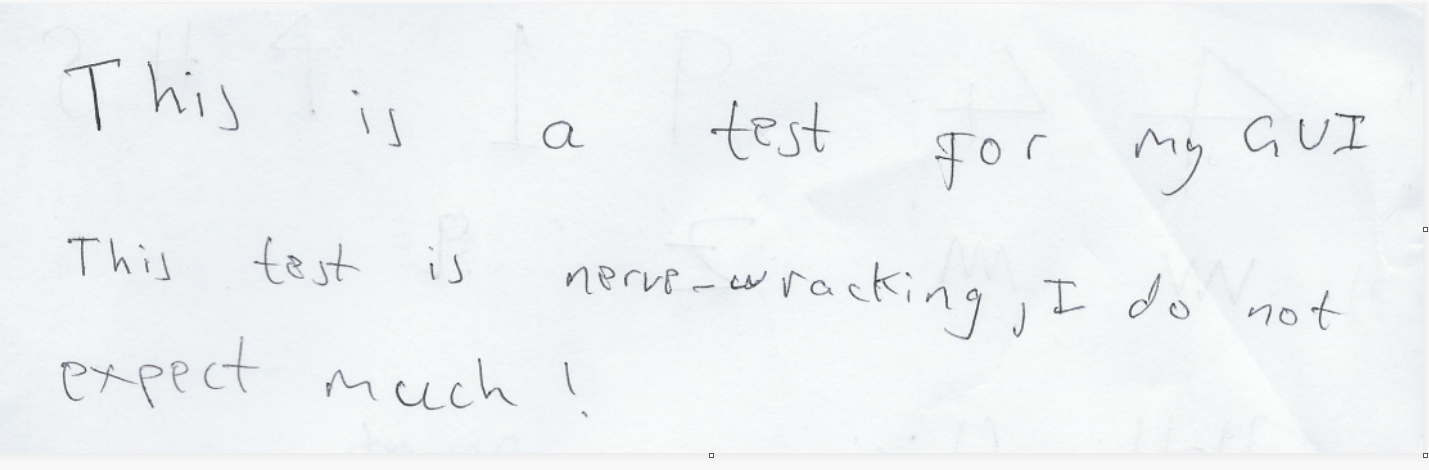 This is a test for my GUI
This test is nerve-wracking, I do not
expect much!